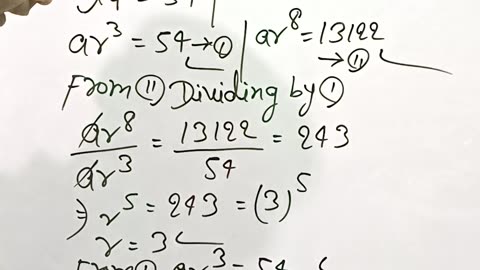 ar³ = 54 → ① | ar⁸ = 13122
→ ⑪
From ⑪ Dividing by ①
ar⁸ / ar³ = 13122 / 54 = 243
⇒ r⁵ = 243 = (3)⁵
r = 3
From ① ar³ = 54